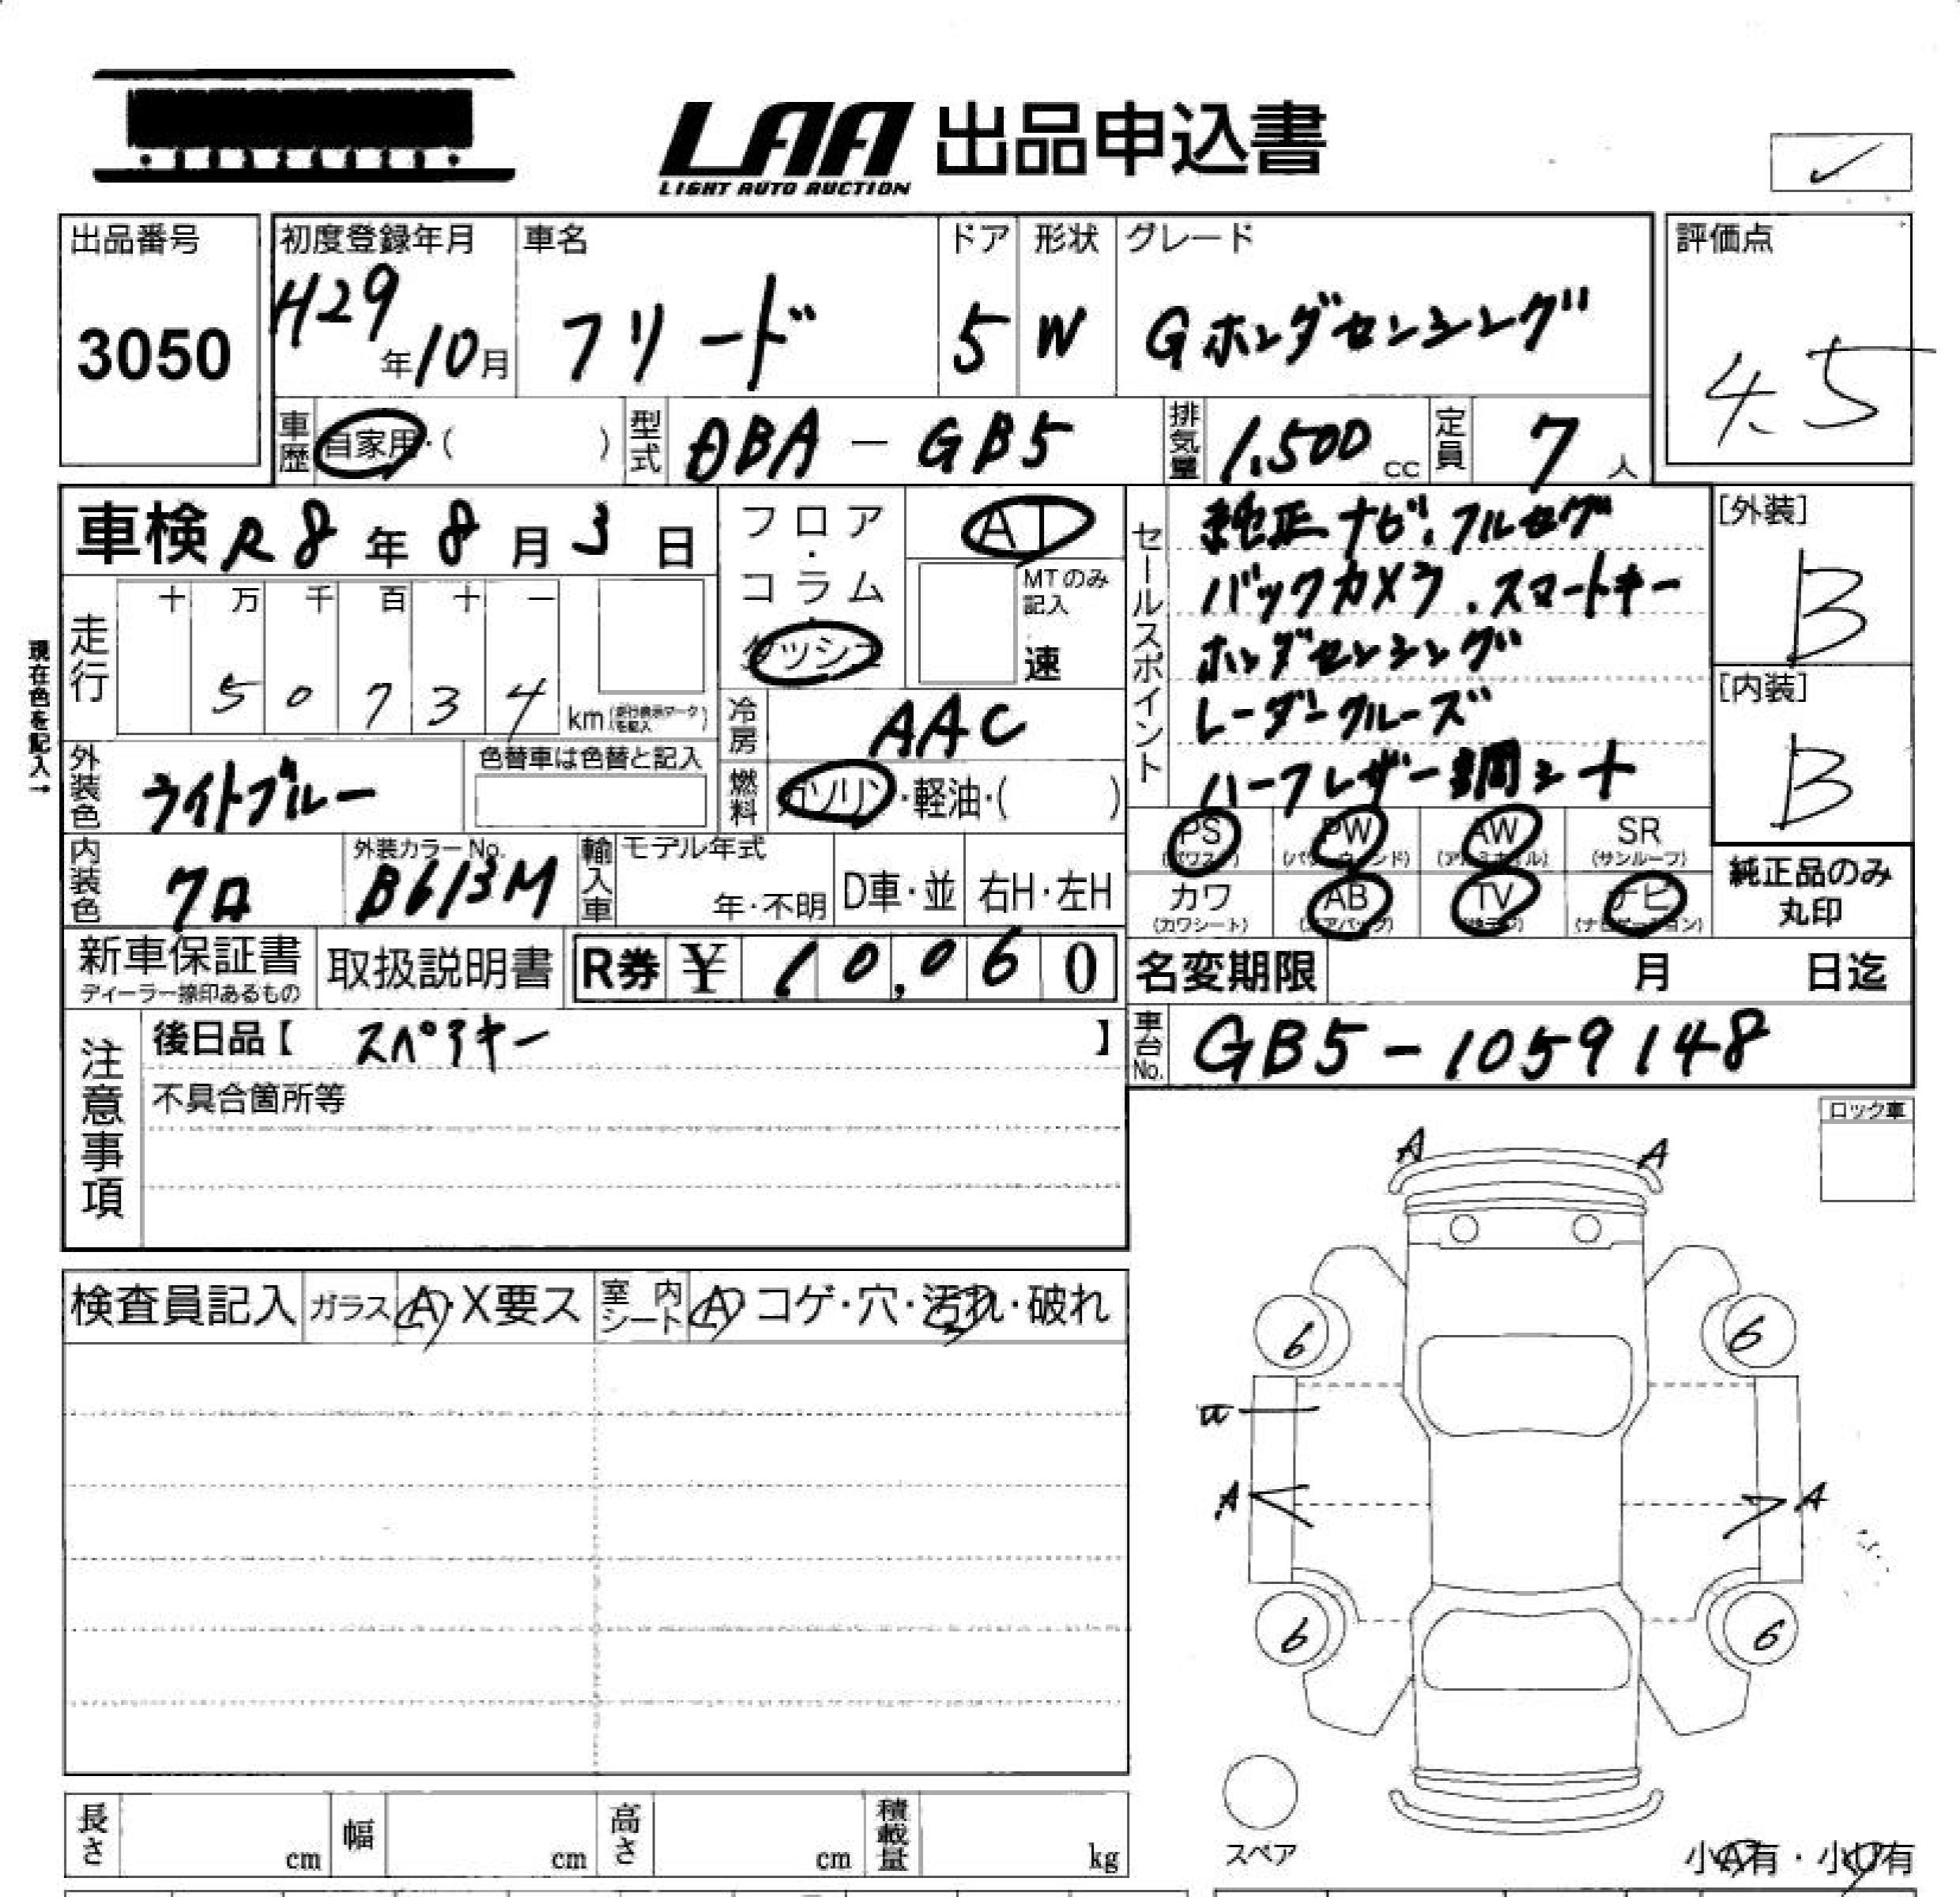 LAA 出品申込書
LIGHT AUTO AUCTION
✓
出品番号
3050
初度登録年月
H29年10月
車名
フリード
ドア
5
形状
W
グレード
Gホンダセンシング
評価点
4.5
車歴
自家用・( )
型式
DBA-GB5
排気量
1.500cc
定員
7人
車検 R8年8月3日
フロア・コラム・ダッシュ
AT
MTのみ記入
速
セールスポイント
純正ナビ.フルセグ
バックカメラ.スマートキー
ホンダセンシング
レーダークルーズ
ハーフレザー調シート
[外装]
B
[内装]
B
現在色を記入→
走行
十 万 千 百 十 一
5 0 7 3 4 km
冷房
AAC
外装色
ライトブルー
色替車は色替と記入
燃料
ガソリン・軽油・( )
内装色
クロ
外装カラーNo.
B613M
輸入車
モデル年式
年・不明
D車・並
右H・左H
PS
(パワステ)
PW
(パワーウィンド)
AW
(アルミホイル)
SR
(サンルーフ)
カワ
(カワシート)
AB
(エアバッグ)
TV
ナビ
(ナビゲーション)
純正品のみ
丸印
新車保証書
ディーラー捺印あるもの
取扱説明書
R券 ¥ 10,060
名変期限 月 日迄
注意事項
後日品【 スペアキー 】
不具合箇所等
車台No.
GB5-1059148
ロック車
検査員記入
ガラス A・X要ス
室内シート A・コゲ・穴・汚れ・破れ
A A
6 6
A A
6 6
スペア
小A有・小U有
長さ cm
幅 cm
高さ cm
積載量 kg